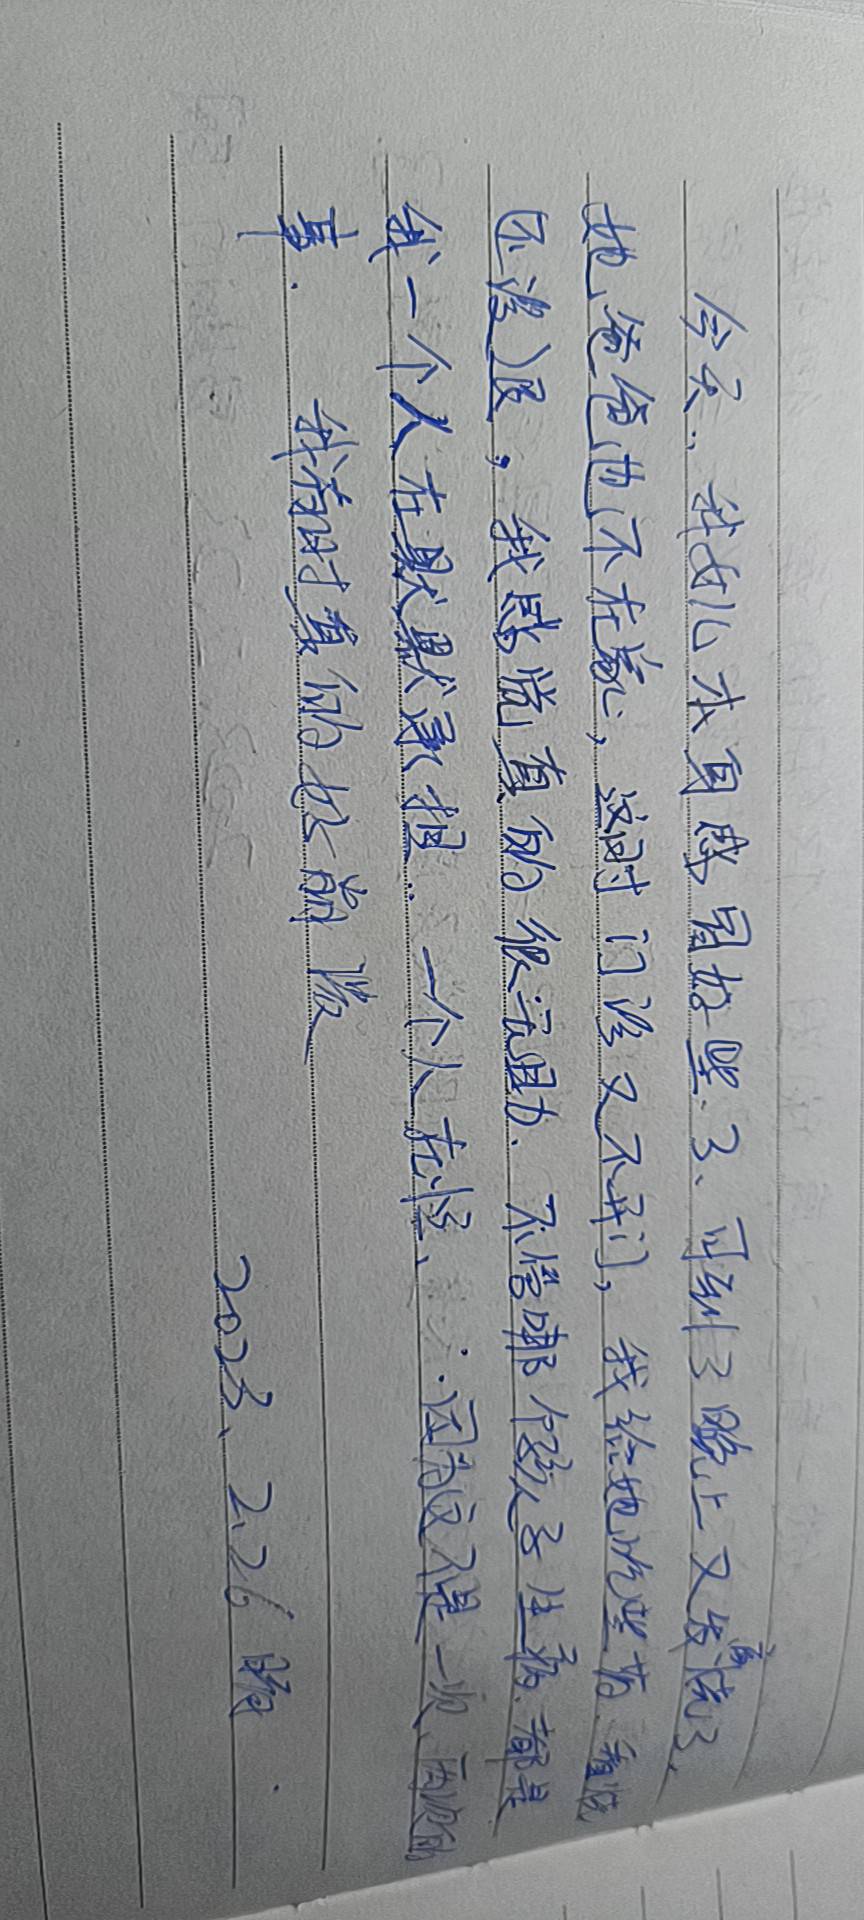 今天，我女儿本身感冒好些了、可到了晚上又发高烧了，
她爸爸也不在家，这时门诊又不开门，我给她吃些药.看烧
还没退，我感觉真的很无助.不管哪个孩子生病.都是
我一个人在默默承担..一个人在忙、...因为这不是一次、两次的
事.我有时真的好崩溃
2023、2.26 晚.